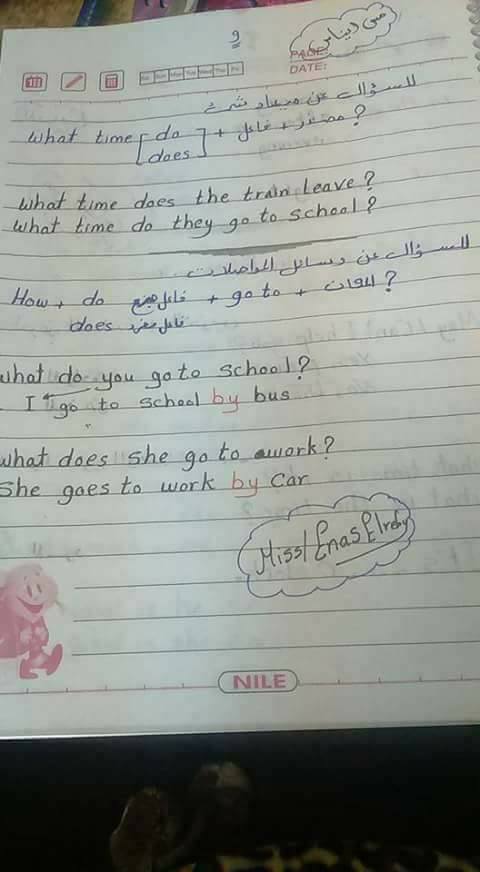 و
مس ايناس
PAGE:
DATE:
Sat Sun Mon Tue Wed Thu Fri
للسؤال عن ميعاد شئ
What time [ do does ] + فاعل + مصدر ?
What time does the train leave?
What time do they go to school?
للسؤال عن وسائل المواصلات
How + do فاعل جمع + go to + المكان ?
does فاعل مفرد
what do you go to school?
I go to school by bus
what does she go to work?
She goes to work by car
Miss/ Enas Elreby
NILE